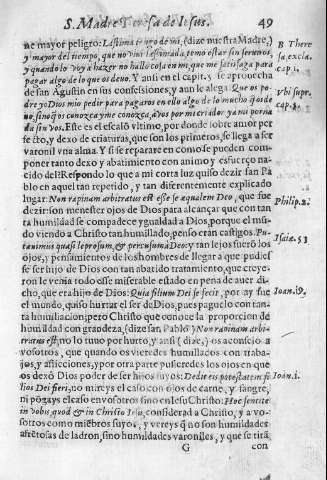 S. Madre Teresa de Iesus. 49
ne mayor peligro: Lastima tengo de mi, (dize nuestra Madre,)
y mayor del tiempo, que no viui lastimada, temo estar sin seruiros,
y quando lo voy a hazer no hallo cosa en mi, que me satisfaga para
pagar algo de lo que os deuo. Y ansi en el capit. 3. se aprouecha
de san Agustin en sus confessiones, y aun le alega. Que os po-
dre yo Dios mio pedir para pagaros en ello algo de lo mucho q̃ os de
uo, sino q̃ os conozca y me conozca, a Vos por mi criador, ya mi por na
da sin vos. Este es el escalõ vltimo, por donde sobre amor per
fecto, y dexo de criaturas, que son los primeros, se llega a ser
varonil vna alma. Y si se repare en como se pueden com-
poner tanto dexo y abatimiento con animo y esfuerço na-
cido del? Respondo lo que a mi corta luz quiso dezir san Pa
blo en aquel tan repetido, y tan diferentemente explicado
lugar. Non rapinam arbitratus est esse se æqualem Deo, que fue
dezir: son menester ojos de Dios para alcançar que con tan
ta humildad se compadece ygualdad a Dios, porque el mis-
mo viendo a Christo tan humillado, penso eran castigos. Pu-
tauimus quasi leprosum, & percussum a Deo: y tan lejos fuerõ los
ojos, y pensamientos de los hombres de llegar a que pudies
se ser hijo de Dios con tan abatido tratamiento, que creye-
ron le venia todo esse miserable estado en pena de auer di-
cho, que era hijo de Dios: Quia filium Dei se fecit, por ay fue
el mundo, quiso hurtar el ser de Dios, pues paguelo con tan-
ta humillacion; pero Christo que conoce la proporcion de
humildad con grandeza, (dize san Pablo) Non rapinam arbi-
tratus est, no lo tuuo por hurto, y ansi (dize,) os aconsejo a
vosotros, que quando os vieredes humillados con traba-
jos, y aflicciones, y por otra parte pusieredes los ojos en que
os dexò Dios poder de ser hijos suyos: Dedit eis potestatem fi-
lios Dei fieri, no mireys el caso con ojos de carne, y sangre,
ni põgays el caso en vosotros sino en Iesu Christo: Hoc sentite
in vobis, quod & in Christo Iesu, considerad a Christo, y a vo-
sotros como miẽbros suyos, y vereys q̃ no son humildades
afrẽtosas de ladron, sino humildades varoniles, y que se tira
G con
B There
sa, excla.
cap. 1.
Vbi supr.
cap. 3.
Philip. 2.
Isaiæ. 53
Ioan. 19.
Ioan. 1.